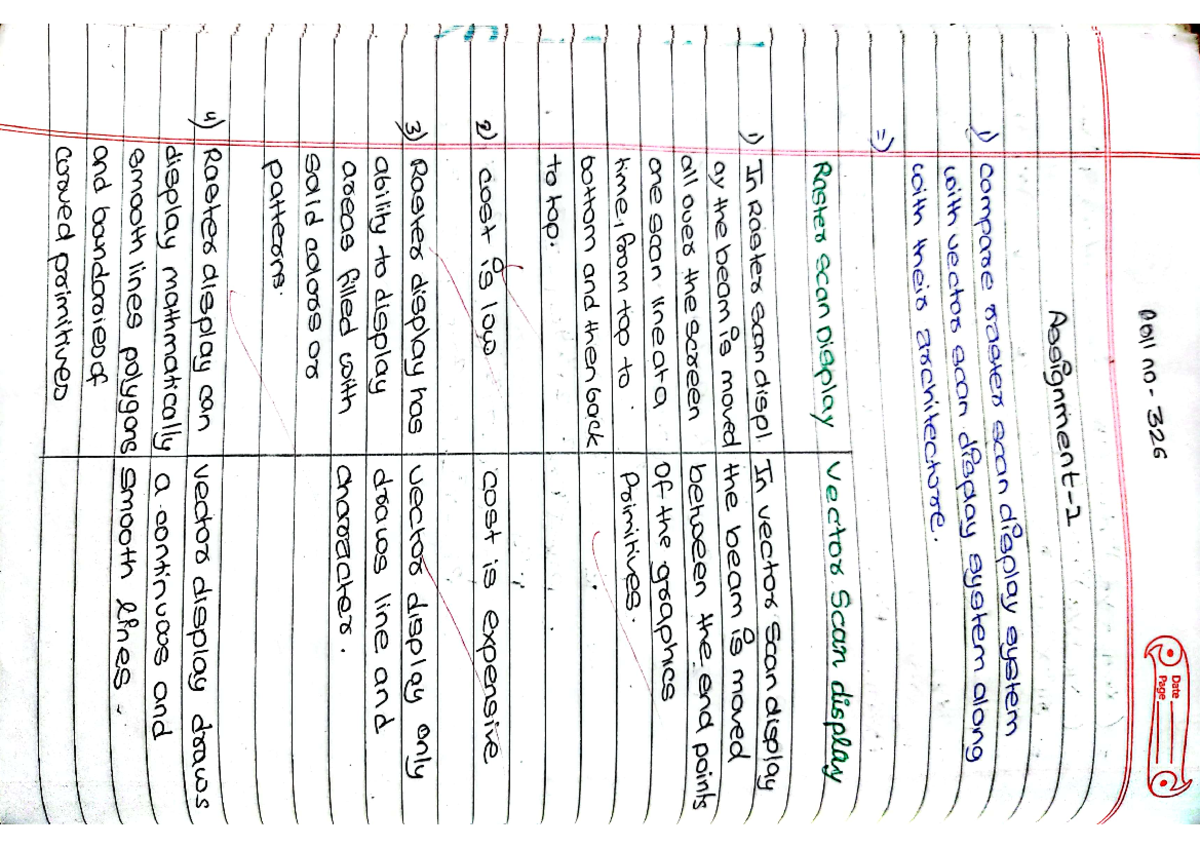 Roll no- 326
Date
Page
Assignment-1
1) Compare raster scan display system
with vector scan display system along
with their architecture.
=)
Raster Scan Display
1) In Raster scan displ
ay the beam is moved
all over the screen
one scan line at a
time, from top to
bottom and then back
to top.
2) cost is low
3) Raster display has
ability to display
areas filled with
solid colors or
patterns.
4) Raster display can
display mathmatically
smooth lines polygons
and bandaries of
curved primitives
Vector Scan display
In vector scan display
the beam is moved
between the end points
of the graphics
primitives.
cost is expensive
vector display only
draws line and
character.
vector display draws
a continuos and
smooth lines.